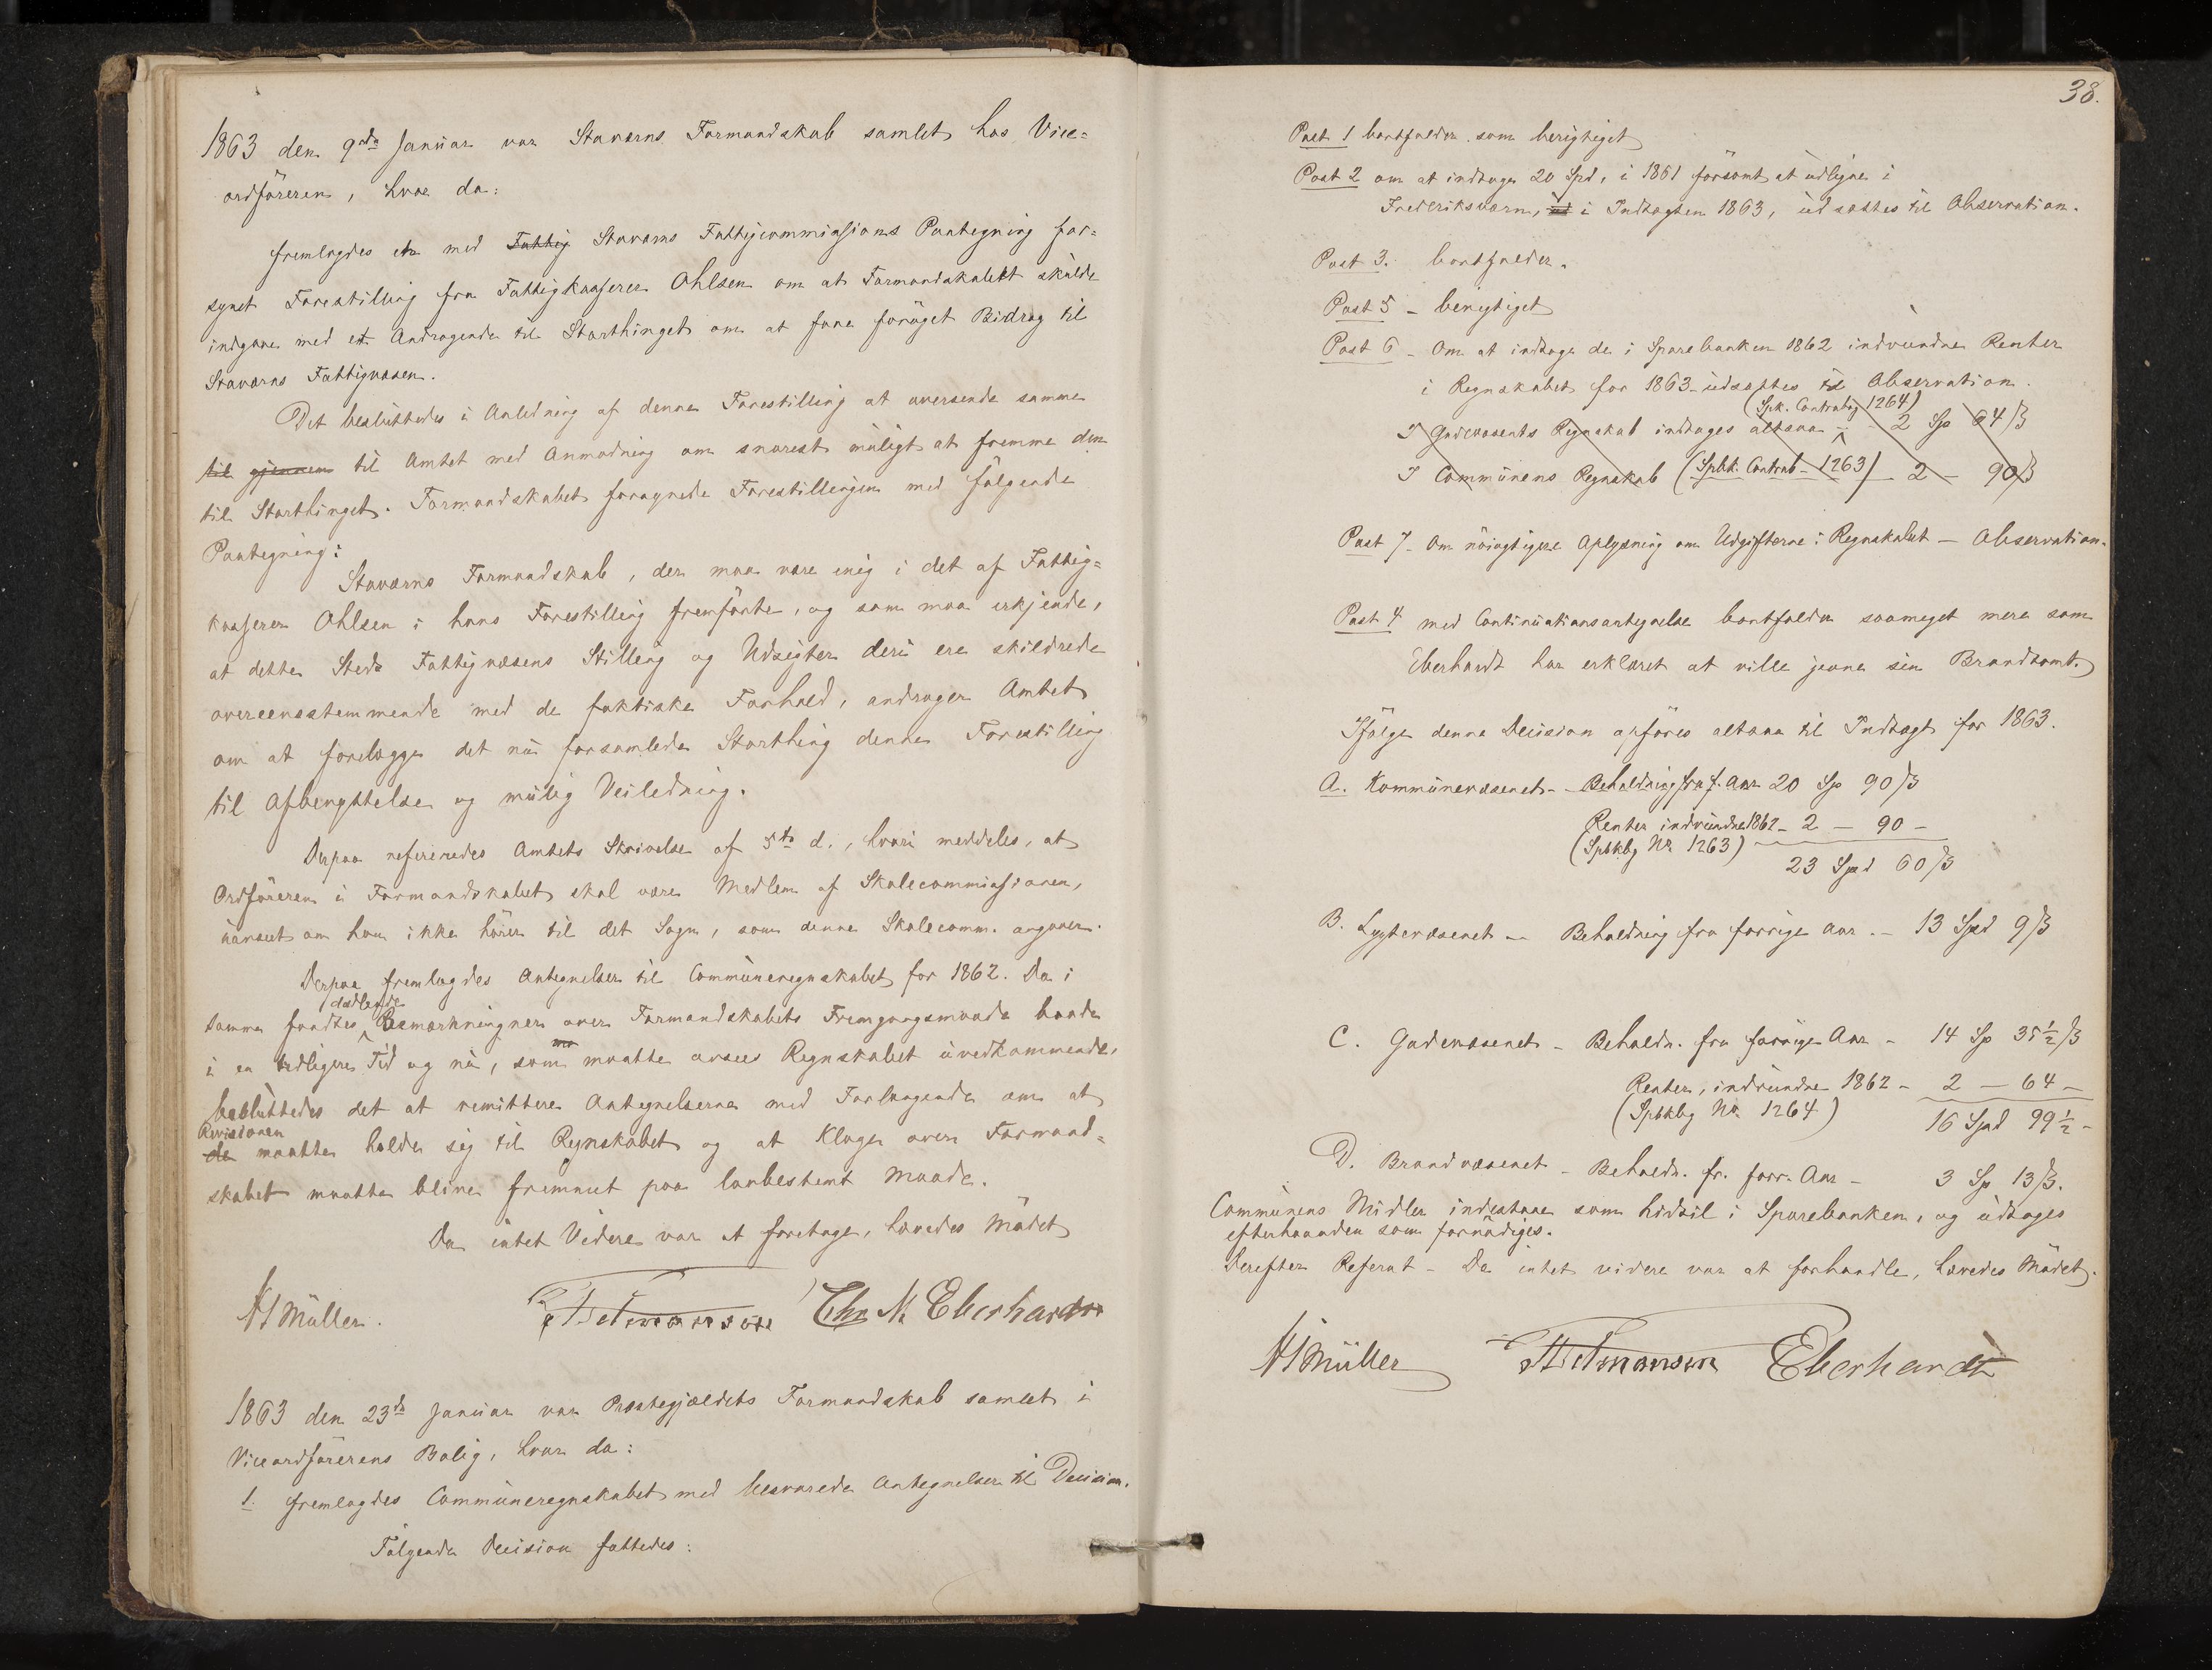 1863 den 9de Januar var Staværns Formandskab samlet hos Vice=
ordføreren, hvor da:
fremlagdes en med Fattig Staværns Fattigcommissions Paategning for=
synet Forestilling fra Fattigkasserer Ohlsen om at Formandskabet skulde
indgaae med et Andragende til Storthinget om at faae forøget Bidrag til
Staværns Fattigvæsen.
Det besluttedes i Anledning af denne Forestilling at oversende samme
til gjennem til Amtet med Anmodning om snarest muligt at fremme den
til Storthinget. Formandskabet forsynede Forestillingen med følgende
Paategning:
Staværns Formandskab, der maa være enig i det af Fattig=
kasserer Ohlsen i hans Forestilling fremførte, og som maa erkjende,
at dette Steds Fattigvæsens Stilling og Udsigter deri ere skildrede
overeensstemmende med de faktiske Forhold, andrager Amtet
om at forelægge det nu forsamlede Storthing denne Forestilling
til Afbenyttelse og mulig Veiledning.
Derpaa refereredes Amtets Skrivelse af 5te d., hvori meddeles, at
Ordføreren i Formandskabet skal være Medlem af Skolecommissionen,
uanseet om han ikke hører til det Sogn, som denne Skolecomm. angaaer.
Derpaa fremlagdes Antegnelser til Communeregnskabet for 1862. Da i
samme fandtes dadlende Bemærkninger over Formandskabets Fremgangsmaade baade
i en tidligere Tid og nu, som maatte ansees Regnskabet uvedkommende,
besluttedes det at remittere Antegnelserne med Forlangende om at
Revisionen
de maatte holde sig til Regnskabet og at Klager over Formand=
skabet maatte blive fremmet paa lovbestemt Maade.
Da intet Videre var at foretage, hævedes Mødet
Müller. Chr N. Eberhardt
1863 den 23de Januar var Præstegjældets Formandskab samlet i
Viceordførerens Bolig, hvor da:
1. fremlagdes Communeregnskabet med besvarede Antegnelser til Decision.
Følgende Decision fattedes:
38.
Post 1 bortfalder som berigtiget
Post 2 om at indtage 20 Spd, i 1861 forsømt at udligne i
Frederiksværn, ud i Indtægten 1863, udsættes til Observation.
Post 3. bortfalder.
Post 5 - berigtiget
Post 6 - Om at indtage de i Sparebanken 1862 indvundne Renter
i Regnskabet for 1863 - udsættes til Observation.
(Spk. Contrabog 1264)
I Gadevæsenets Regnskab indtages altsaa - 2 Sp 64 ß
I Communens Regnskab (Spbk. Contrab - 1263) - 2 - 90 ß
Post 7 - Om nøiagtigere Oplysning om Udgifterne i Regnskabet - Observation.
Post 4 med Continuationsantegnelse bortfalder saameget mere som
Eberhardt har erklæret at ville jevne sin Brandtomt.
Ifølge denne Decision opføres altsaa til Indtægt for 1863.
A. Kommunevæsenet - Beholdning fra f. Aar 20 Sp 90 ß
Renter indvundne 1862 - 2 - 90 -
(Spbkbg No 1263)
23 Spd 60 ß
B. Lygtevæsenet - Beholdning fra forrige Aar. - 13 Spd 9 ß
C. Gadevæsenet - Beholdn. fra forrige Aar - 14 Sp 35 ½ ß
Renter, indvundne 1862 - 2 - 64 -
(Spbkbg No 1264)
16 Spd 99 ½ -
D. Brandvæsenet - Beholdn. fr. forr. Aar - 3 Sp 13 ß.
Communens Midler indestaae som hidtil i Sparebanken, og udtages
efterhaanden som fornødiges.
Derefter Referat - Da intet videre var at forhandle, hævedes Mødet.
Müller Eberhardt